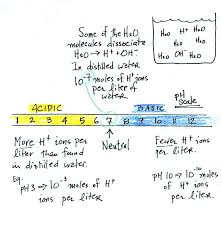 Some of the H2O
molecules dissociate
H2O → H+ + OH-
In distilled water
10-7 moles of H+ ions
per liter of
water
H2O H+ H2O
H2O H2O
H2O OH- H2O
pH
Scale
ACIDIC
BASIC
1 2 3 4 5 6 7 8 9 10 11 12
More H+ ions per
liter than found
in distilled water.
Eg:
pH3 → 10-3 moles of H+
ions per liter.
Neutral
Fewer H+ ions
per liter.
pH 10 → 10-10 moles
of H+ ions
per liter